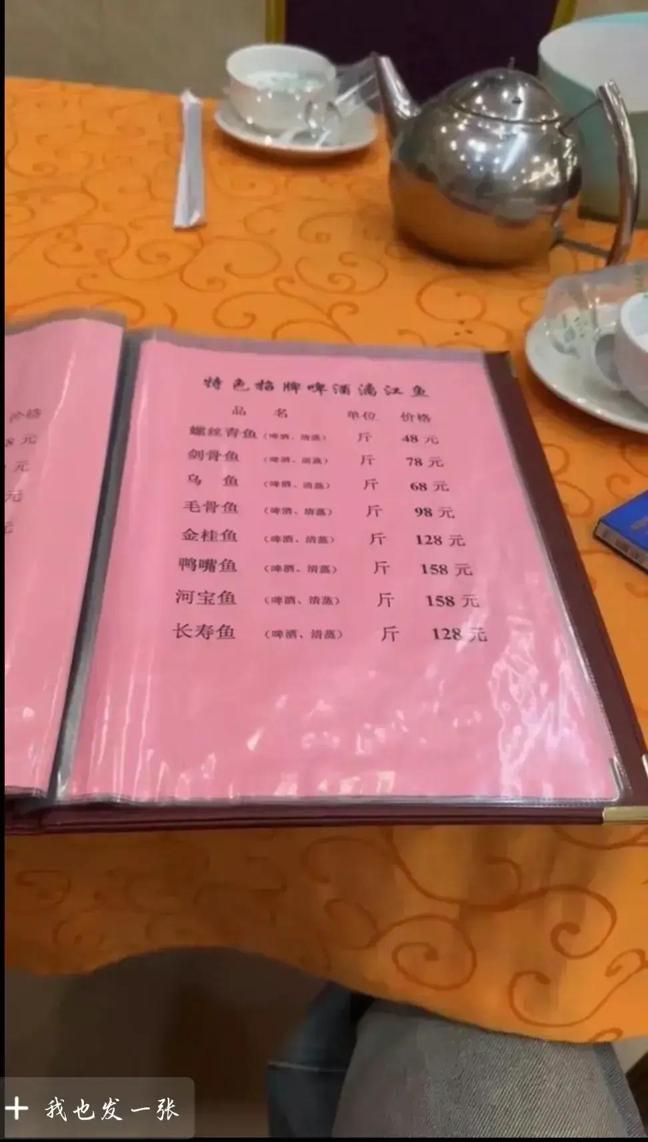 价格
8 元
元
元
元
特色招牌啤酒漓江鱼
品 名 单位 价格
螺丝青鱼（啤酒、清蒸） 斤 48 元
剑骨鱼（啤酒、清蒸） 斤 78 元
乌 鱼（啤酒、清蒸） 斤 68 元
毛骨鱼（啤酒、清蒸） 斤 98 元
金桂鱼（啤酒、清蒸） 斤 128 元
鸭嘴鱼（啤酒、清蒸） 斤 158 元
河宝鱼（啤酒、清蒸） 斤 158 元
长寿鱼（啤酒、清蒸） 斤 128 元
+ 我也发一张